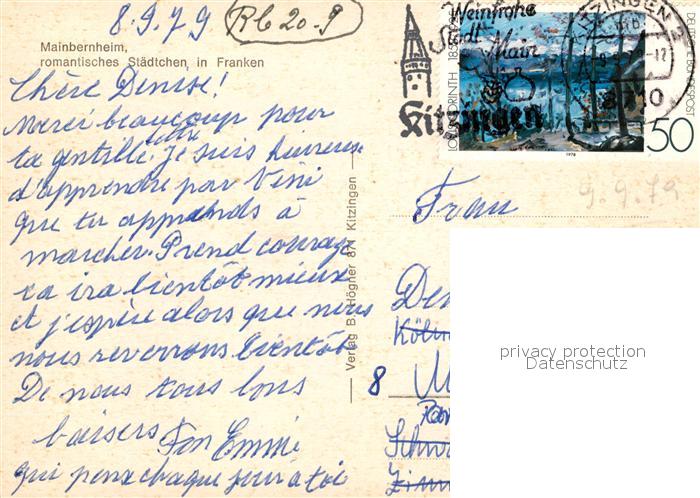 8.9.79 Rb 20-9
Mainbernheim,
romantisches Städtchen, in Franken
Chère Denise!
Merci beaucoup pour
ta gentille lettre. Je suis heureuse
d'apprendre par Vini
que tu apprends à
marcher. Prend courage
ça ira bientôt mieux
et j'espère alors que nous
nous reverrons bientôt
De nous tous bons
baisers Ton Emmi
qui pense chaque jour à toi
Verlag B. Högner 871 Kitzingen
Weinfrohe
Stadt
Main
Kitzingen
KITZINGEN 2
8710
LOVIS CORINTH
DEUTSCHE BUNDESPOST
50
1978
9.9.79
Frau
Den
Köln
8 M
Schw
Zimm
privacy protection
Datenschutz